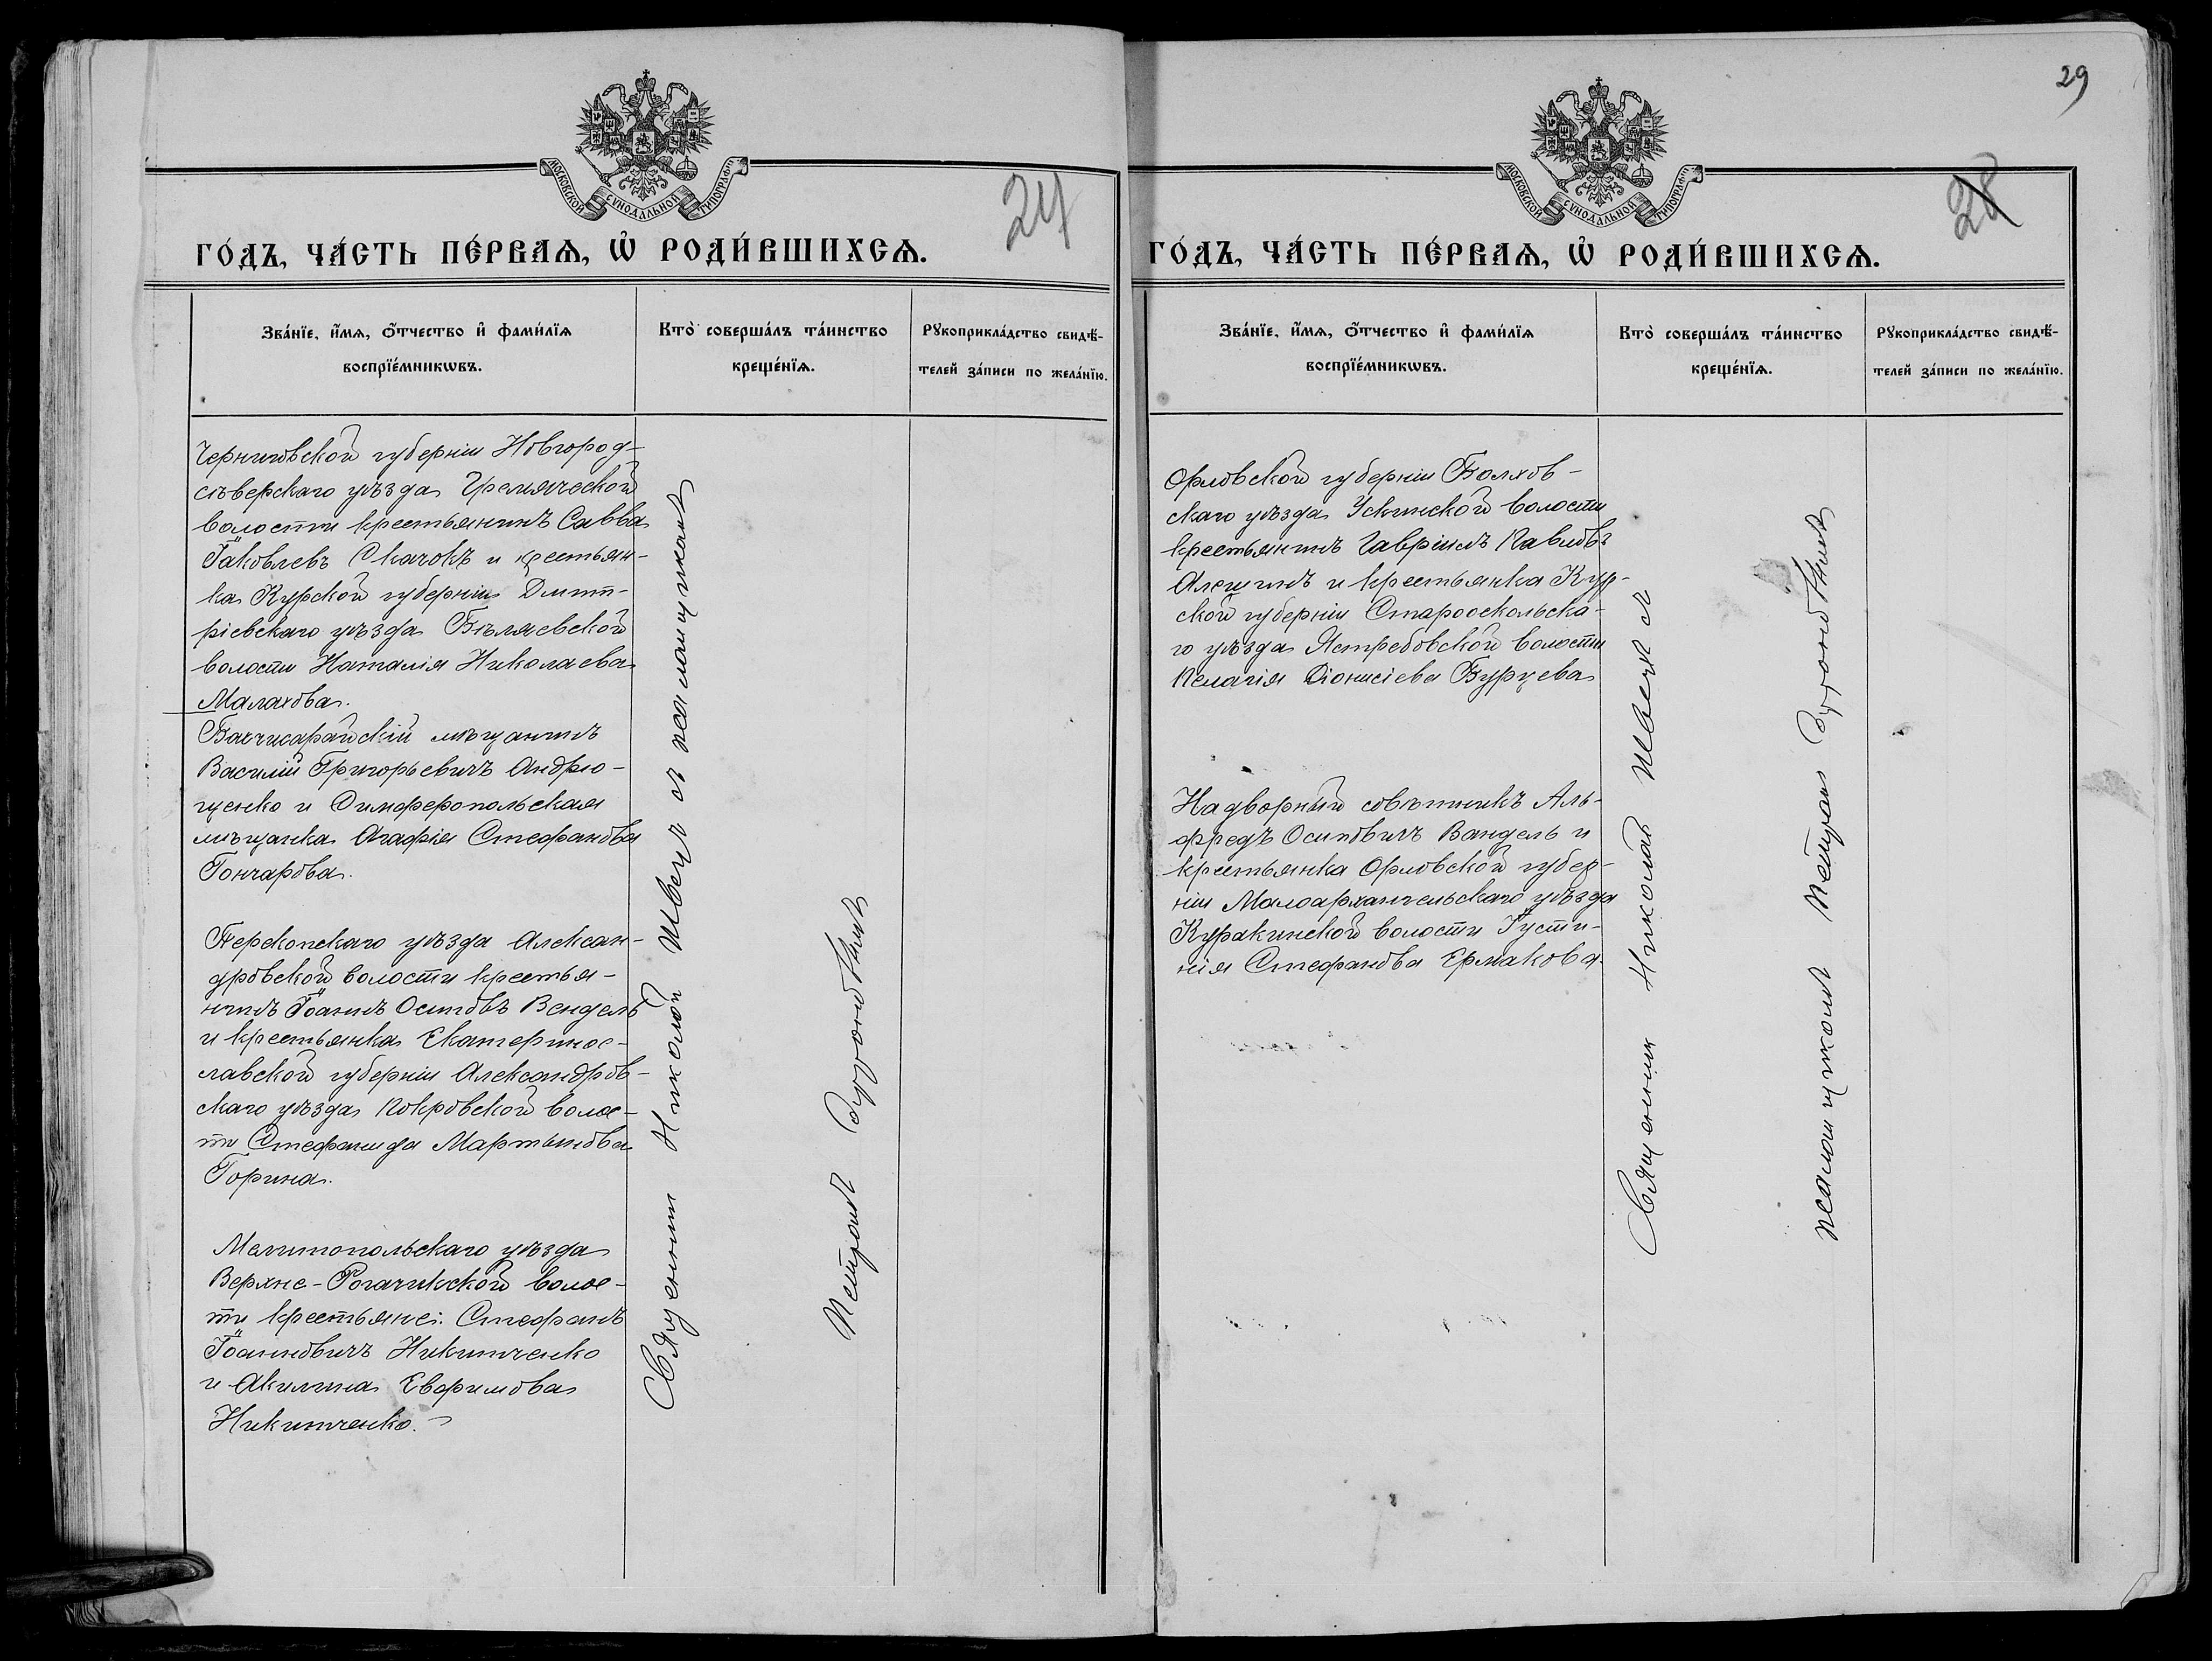 МОСКОВСКОЙ СѴНОДАЛЬНОЙ ТИПОГРАФІИ
24
ГО́ДЪ, ЧА́СТЬ ПЕ́РВАѦ, Ѽ РОДИ́ВШИХСѦ.
Зва́нїе, и҆́мѧ, ѻ҆́тчество и҆ фами́лїѧ
воспрїе́мникѡвъ.
Кто̀ соверша́лъ та́инство
креще́нїѧ.
Рꙋкоприкла́дство свидѣ́-
телей за́писи по жела́нїю.
Черниговской губерніи Новгород-
сѣверскаго уѣзда Гремячской
волости крестьянинъ Савва
Іаковлевъ Скачокъ и крестьян-
ка Курской губерніи Дмит-
ріевскаго уѣзда Бѣляевской
волости Наталія Николаева
Малахова.
Бахчисарайскій мѣщанинъ
Василій Григорьевичъ Андрю-
щенко и Симферопольская
мѣщанка Агафія Стефанова
Гончарова.
Перекопскаго уѣзда Алексан-
дровской волости крестья-
нинъ Іоаннъ Осиповъ Вендель
и крестьянка Екатеринос-
лавской губерніи Александров-
скаго уѣзда Покровской волос-
ти Стефанида Мартынова
Горина.
Мелитопольскаго уѣзда
Верхне-Рогачикской волос-
ти крестьяне: Стефанъ
Іоанновичъ Никитченко
и Акилина Евфимова
Никитченко.
Священник Николай Швец с псаломщиком
29
МОСКОВСКОЙ СѴНОДАЛЬНОЙ ТИПОГРАФІИ
28
ГО́ДЪ, ЧА́СТЬ ПЕ́РВАѦ, Ѽ РОДИ́ВШИХСѦ.
Зва́нїе, и҆́мѧ, ѻ҆́тчество и҆ фами́лїѧ
воспрїе́мникѡвъ.
Кто̀ соверша́лъ та́инство
креще́нїѧ.
Рꙋкоприкла́дство свидѣ́-
телей за́писи по жела́нїю.
Орловской губерніи Болхов-
скаго уѣзда Ускинской волости
крестьянинъ Гавріилъ Павловъ
Алешинъ и крестьянка Кур-
ской губерніи Старооскольска-
го уѣзда Ястребовской волости
Пелагія Діонисіева Бурцева
Надворный совѣтникъ Аль-
фредъ Осиповичъ Вандель и
крестьянка Орловской губер-
ніи Малоархангельскаго уѣзда
Куракинской волости Іусти-
нія Стефанова Ермакова.
Священник Николай Швец с
псаломщиком